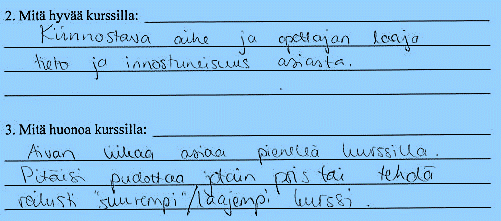 2. Mitä hyvää kurssilla:
Kiinnostava aihe ja opettajan laaja
tieto ja innostuneisuus asiasta.
3. Mitä huonoa kurssilla:
Aivan liikaa asiaa pienellä kurssilla.
Pitäisi pudottaa jotain pois tai tehdä
reilusti "suurempi"/laajempi kurssi.